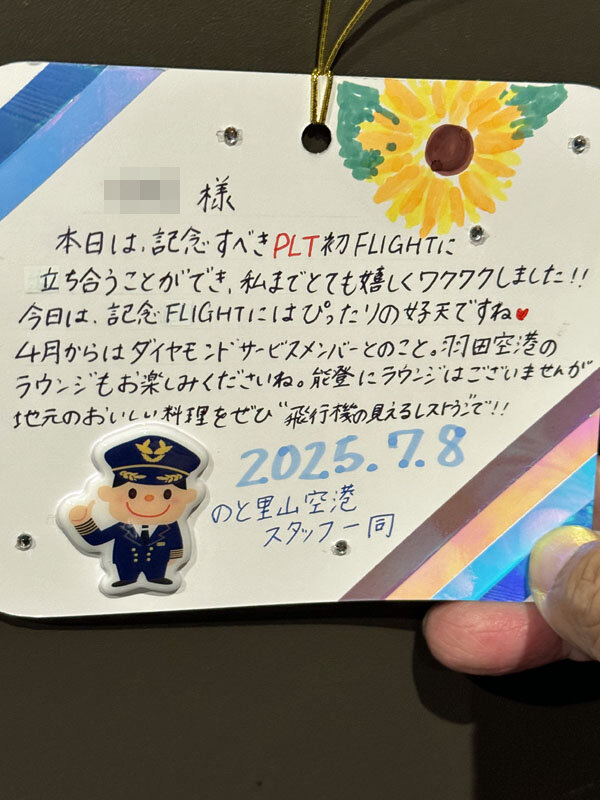 様
本日は、記念すべきPLT初FLIGHTに
立ち合うことができ、私までとても嬉しくワクワクしました!!
今日は、記念FLIGHTにはぴったりの好天ですね♥
4月からはダイヤモンドサービスメンバーとのこと。羽田空港の
ラウンジもお楽しみくださいね。能登にラウンジはございませんが
地元のおいしい料理をぜひ"飛行機の見えるレストラン"で!!
2025.7.8
のと里山空港
スタッフ一同